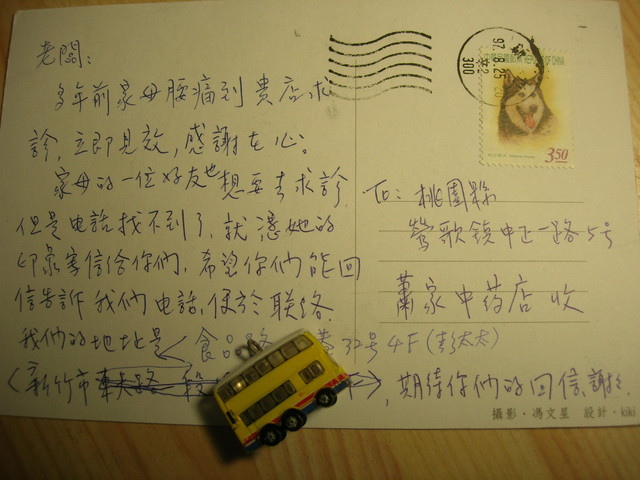 老闆:
多年前家母腰痛到貴店求
診,立即見效,感謝在心。
家母的一位好友也想要去求診,
但是电話找不到了,就憑她的
印象寄信给你們,希望你們能回
信告訴我們电話,便於联络.
我們的地址是 食品路 巷32号4F(彭太太)
(新竹市 ),期待你們的回信,謝謝.
To: 桃園縣
鶯歌鎮中正一路5号
蕭家中药店收
97.8.25
300
REPUBLIC OF CHINA
350
攝影・馮文星 設計・kiki